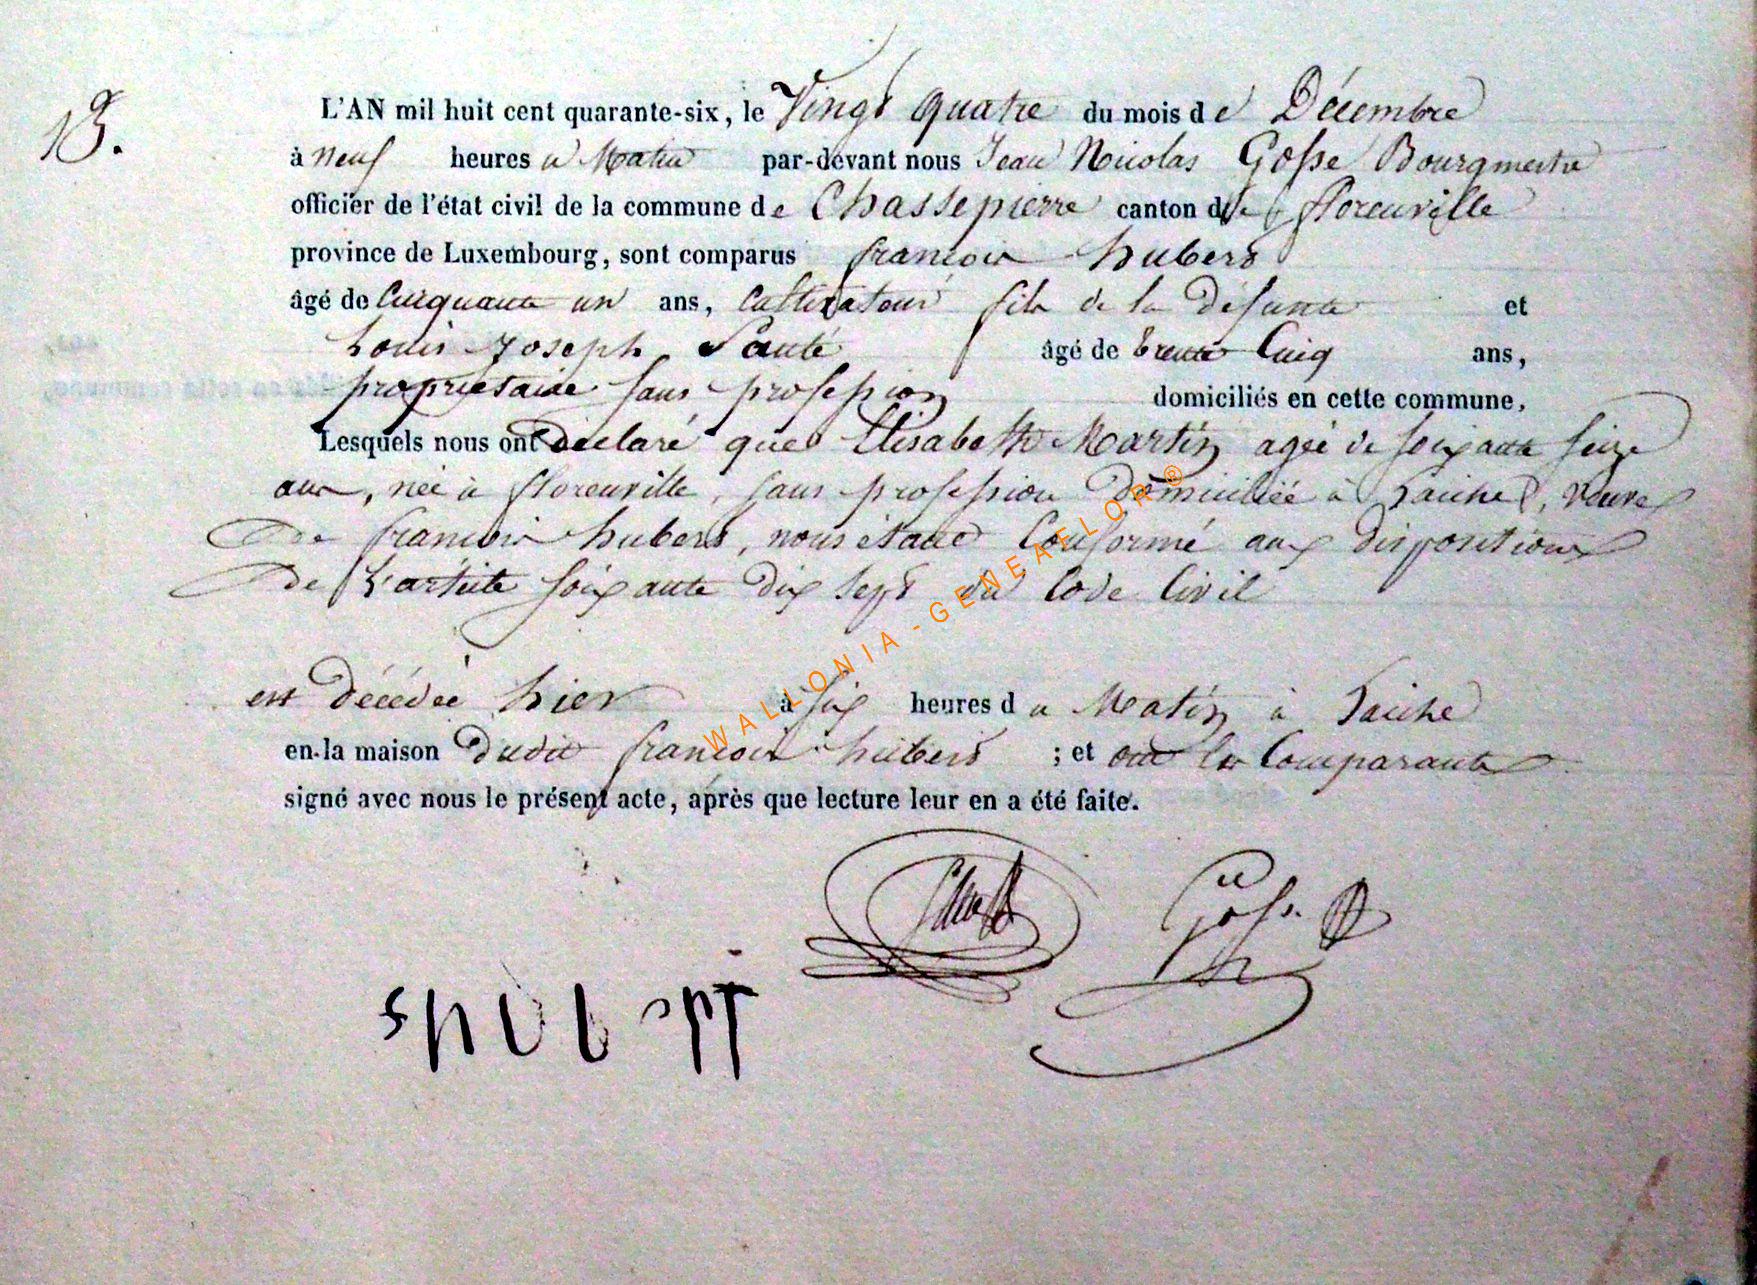 13.
L'AN mil huit cent quarante-six, le Vingt quatre du mois de Décembre
à neuf heures du Matin par-devant nous Jean Nicolas Gosse Bourgmestre
officier de l'état civil de la commune de Chassepierre canton de florenville
province de Luxembourg, sont comparus francois hubert
âgé de Cinquante un ans, Cultivateur fils de la défunte et
Louis Joseph âgé de trente Cinq ans,
propriétaire sans profession domiciliés en cette commune,
Lesquels nous ont déclaré que Elisabeth Martin agée de soixante seize
ans, née à florenville, sans profession domiciliée à Laiche, veuve
de francois hubert, nous étant Conformé aux dispositions
de L'article soixante dix sept du Code Civil
est décédée hier à six heures du Matin à Laiche
en la maison dudit francois hubert ; et ont les Comparants
signé avec nous le présent acte, après que lecture leur en a été faite.
Gosse
WALLONIA - GENEAFLOR ®